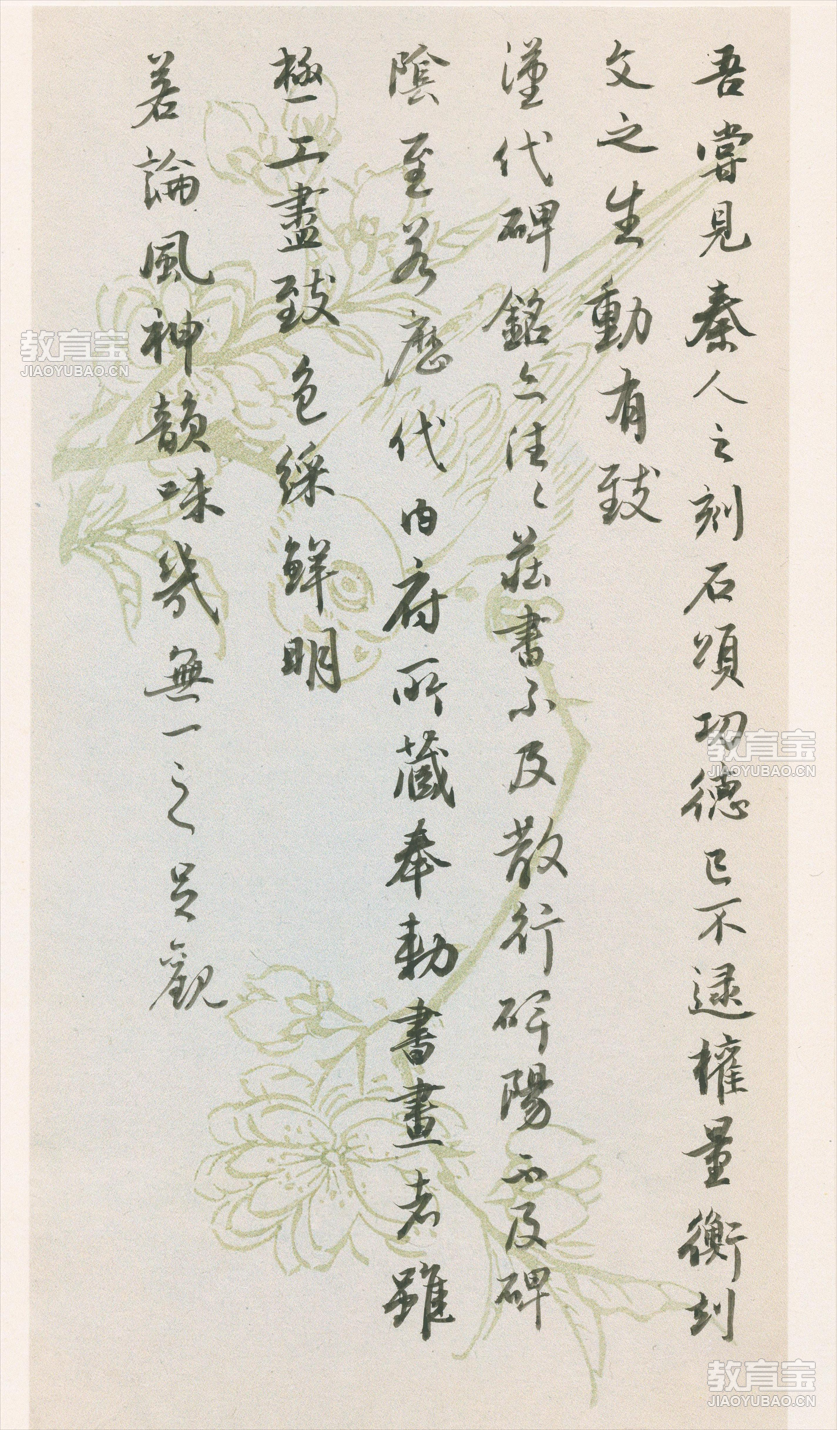 吾嘗見秦人之刻石頌功德已不逮權量衡刻
文之生動有致
漢代碑銘亦往〻莊書不及散行碑陽不及碑
陰至若歷代内府所藏奉勅書畫者雖
極工盡致色綵鮮明
若論風神韻味幾無一之足觀
教育宝
JIAOYUBAO.CN
教育宝
JIAOYUBAO.CN
教育宝
JIAOYUBAO.CN